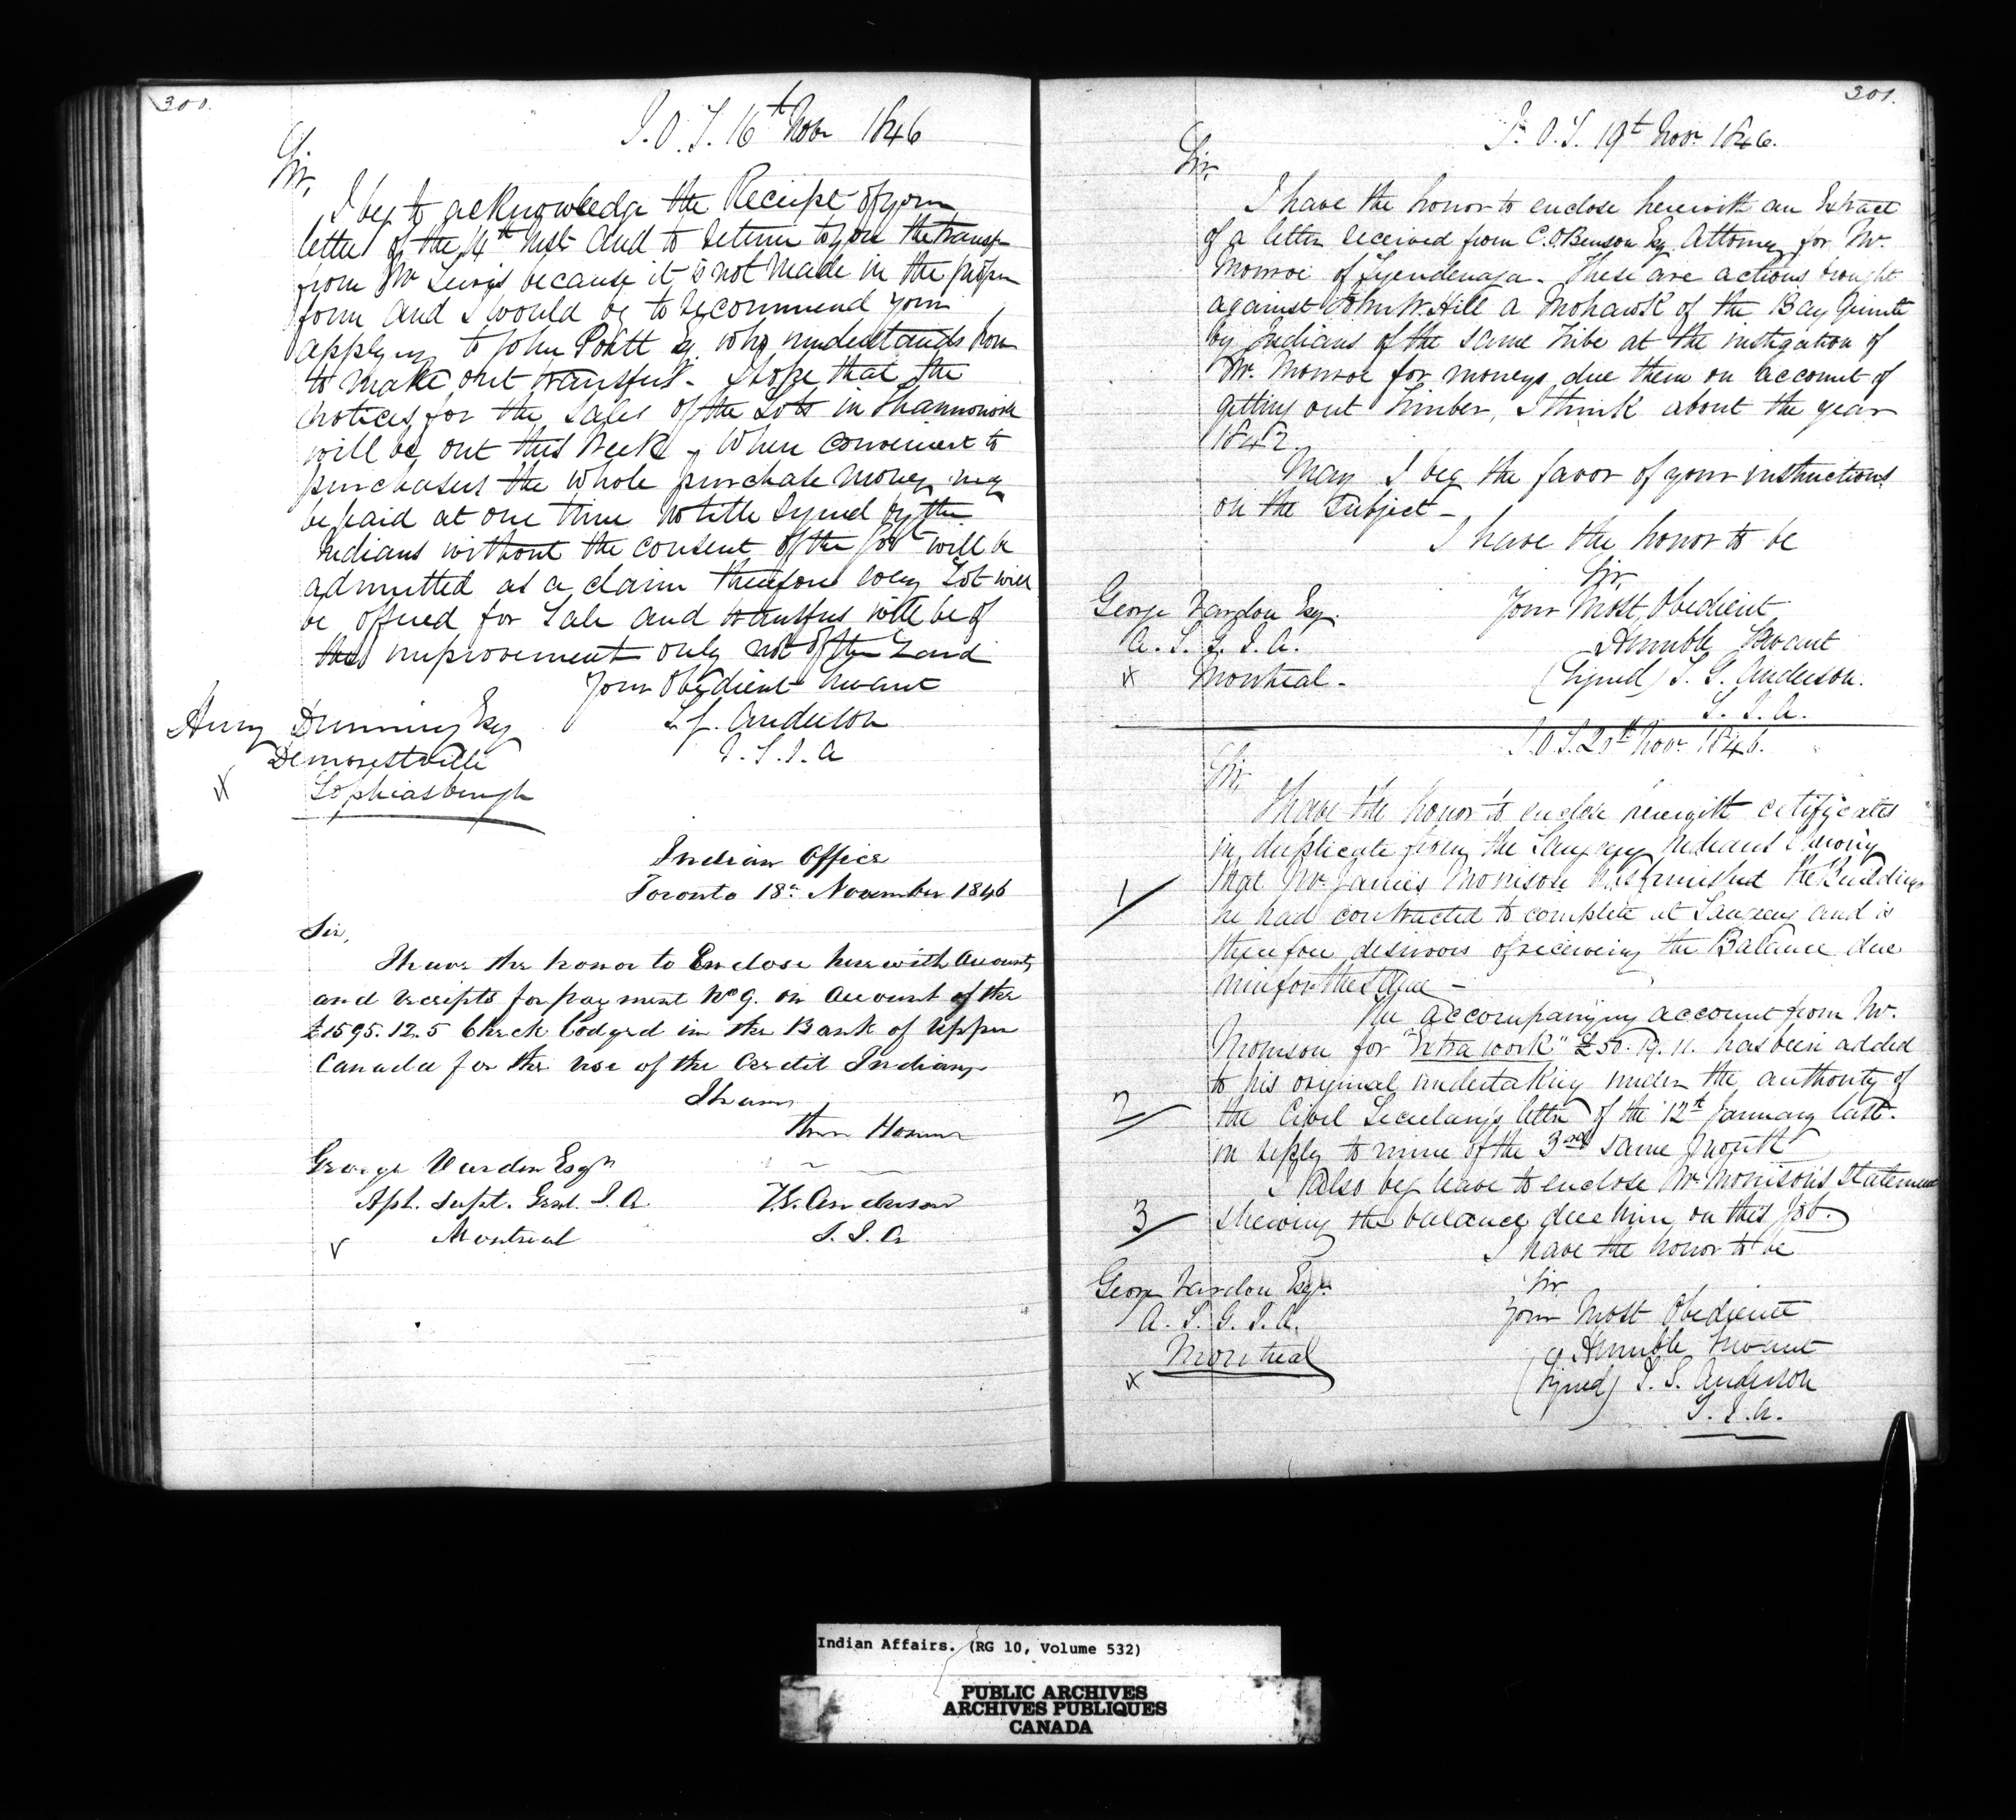 300.
I.O.T. 16th Novr 1846
Sir,
I beg to acknowledge the Receipt of your
letter of the 14th Inst and to return to you the transfer
from Mr Lewis because it is not made in the proper
form and I would beg to recommend your
applying to John Portt Esq. who understands how
to make out transfers. I hope that the
notices for the sales of the Lots in Shannonvill
will be out this Week. When convenient to
purchasers the whole purchase money may
be paid at one time no title signed by the
Indians without the consent of the Govt will be
admitted as a claim therefore every Lot will
be offered for Sale and transfers will be of
the improvement only not of the Land
Your Obedient Servant
T. G. Anderson
V. S. I. A
Henry Dunning Esq
Demorestville
Sophiasburgh
Indian Office
Toronto 18th November 1846
Sir,
I have the honor to Enclose herewith Accounts
and receipts for payment No 9. on Account of the
£1595.12.5 Check lodged in the Bank of Upper
Canada for the use of the Credit Indians
I have
the Honor
George Vardon Esqr
Apt. Supt. Genl. I. A.
T.G. Anderson
Montreal
S. I. A
301.
I. O. T. 19th Novr 1846.
Sir,
I have the honor to enclose herewith an Extract
of a letter received from C.O. Benson Esq Attorney for Mr.
Monroe of Tyendenaga. These are actions brought
against John W. Hill a Mohawk of the Bay Quinte
by Indians of the same Tribe at the instigation of
Mr. Monroe for moneys due them on account of
getting out timber, I think about the year
1842.
May I beg the favor of your instructions
on the Subject
I have the honor to be
Sir
George Vardon Esq.
Your Most Obedient
A. S. G. I. A.
Humble Servant
x Montreal
(Signed) T. G. Anderson.
S. I. A.
I.O.T. 20th Novr 1846.
Sir,
I have the honor to enclose herewith certificates
in duplicate from the Saugeeng Indians shewing
1 that Mr. James Morrison has finished the Buildings
he had contracted to complete at Saugeeng and is
therefore desirous of receiving the Balance due
him for the same
The accompanying account from Mr.
Morrison for "Extra work" £50. 19. 11. has been added
to his original undertaking under the authority of
2 the Civil Secretary's letter of the 12th January last.
in reply to mine of the 3rd same Month
I also beg leave to enclose Mr. Morrison's Statement
3 shewing the balance due him on this Job.
I have the honor to be
George Vardon Esqr.
Sir
A. S. G. I. A.
Your Most Obedient
Montreal
Humble Servant
x
(Signed) T. G. Anderson
S. I. A.
Indian Affairs. (RG 10, Volume 532)
PUBLIC ARCHIVES
ARCHIVES PUBLIQUES
CANADA